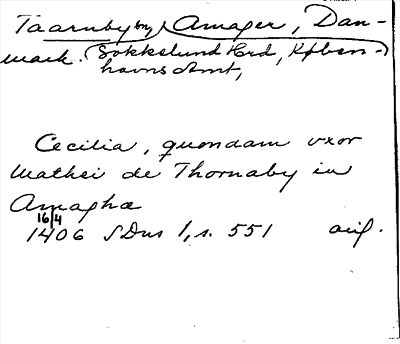 Taarnby by, Amager, Dan-
mark. (Sokkelund Hrd, Køben-
havns Amt,
Cecilia, quondam vxor
Mathei de Thornaby in
Amaghæ
16/4
1406 SDns 1, s. 551